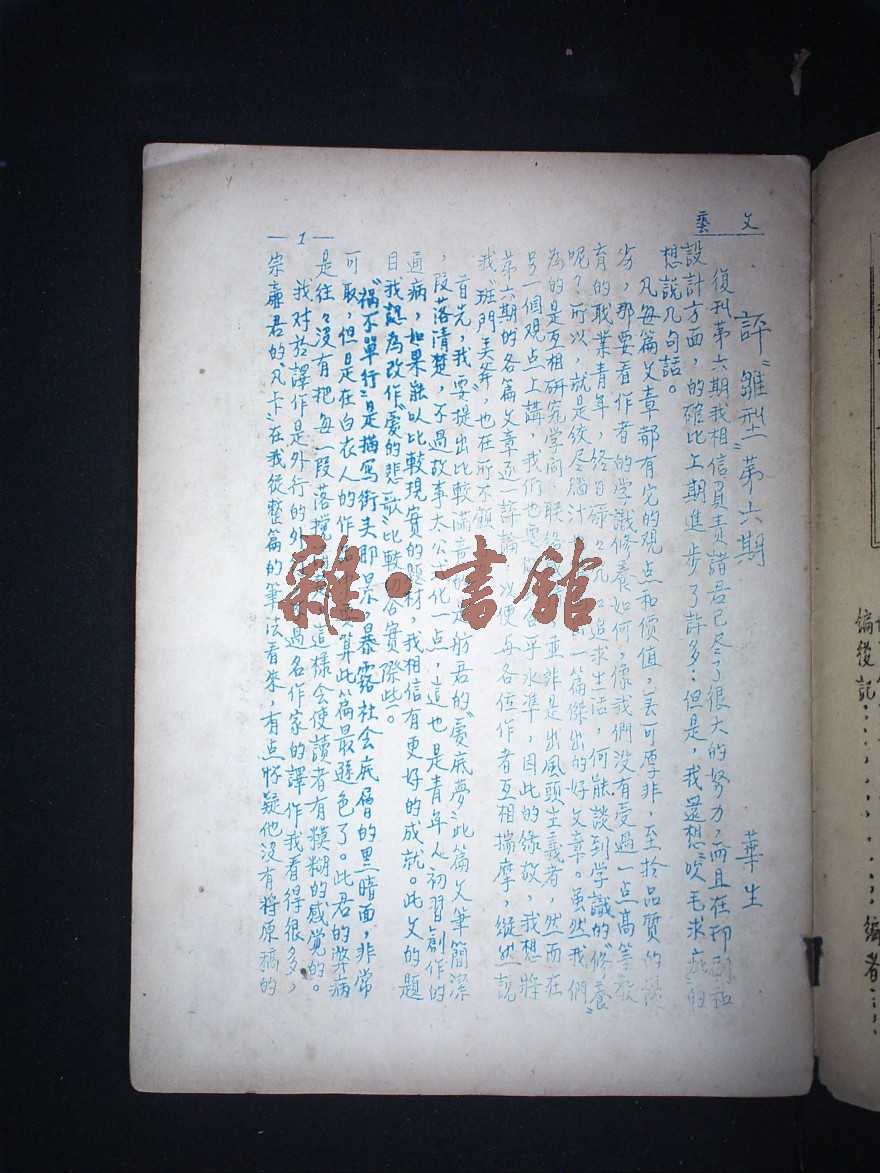 文藝
評“雛型”第六期
華生
復刊第六期我相信負責諸君已尽了很大的努力,而且在印刷和
設計方面,的確比上期進步了許多:但是,我還想“吹毛求疵”的
想說几句話。
凡每篇文章都有它的观点和价值,無可厚非,至於品質的優
劣,那要看作者的学識修養如何,像我們没有受過一点高等教
育的職業青年,終日碌々 追求生活,何能談到学識的“修養”
呢?所以,就是絞尽腦汁 一篇傑出的好文章。虽然我們
為的是互相研究学問,聯絡 並非是出風頭主義者,然而在
另一個观点上講,我們也要 水準,因此的緣故,我想將
第六期的各篇文章逐一評論 以便与各位作者互相揣摩,縱然說
我“班門弄斧”,也在所不顧
首先,我要提出比較滿意的是舫君的“憂底夢”此篇文筆簡潔
,段落清楚,不過故事太公式化一点,這也是青年人初習創作的
通病,如果能以比較現實的題材,我相信有更好的成就。此文的題
目我認為改作“憂的悲歌”比較切合實際些。
“禍不單行”是描寫街头即景,暴露社会底層的黑暗面,非常
可取,但是在白衣人的作品中要算此篇最遜色了。此君的弊病
是往々沒有把每一段落 這樣会使讀者有糢糊的感觉的。
我对於譯作是外行的外 過名作家的譯作我看得很多,
宗廉君的“凡卡”在我從整篇的筆法看來,有点怀疑他沒有將原稿的
— 1 —
編後記
編者